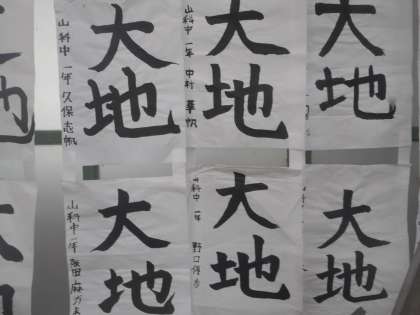 大地
山科中 一年 久保志帆
大地
山科中 一年 中村 華帆
大地
地
大地
山科中 一年 飯田 麻
大地
山科中 一年 野口
大地